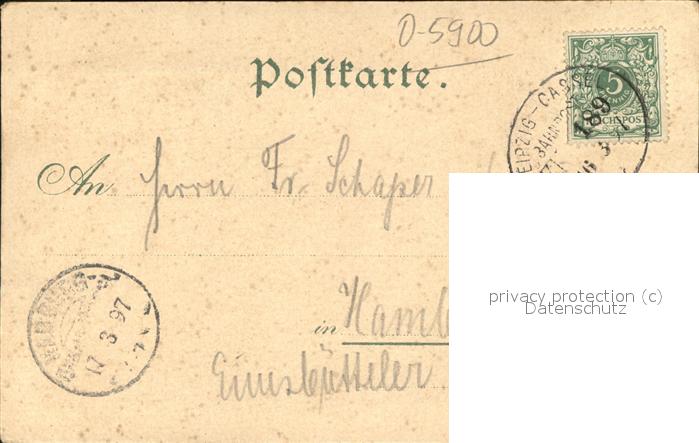 0-5900
Postkarte.
5
REICHSPOST
LEIPZIG-CASSEL
BAHNPOST
189
16 3
An Herrn Fr. Schaper
HAMBURG
17 3 97
in Hamb
Eimsbütteler
privacy protection (c)
Datenschutz